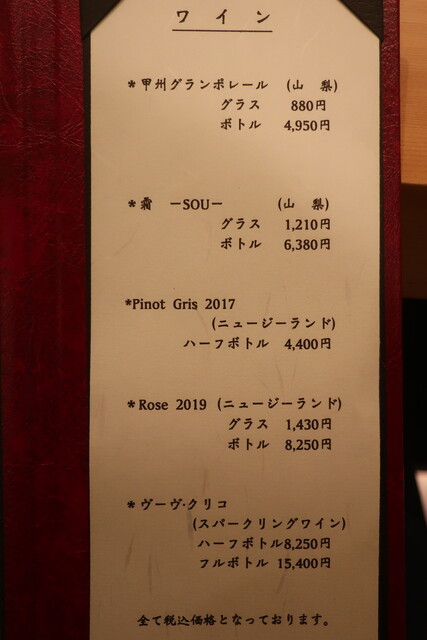 ワイン
*甲州グランポレール (山 梨)
グラス 880円
ボトル 4,950円
*霜 ーSOUー (山 梨)
グラス 1,210円
ボトル 6,380円
*Pinot Gris 2017
(ニュージーランド)
ハーフボトル 4,400円
*Rose 2019 (ニュージーランド)
グラス 1,430円
ボトル 8,250円
*ヴーヴ・クリコ
(スパークリングワイン)
ハーフボトル8,250円
フルボトル 15,400円
全て税込価格となっております。